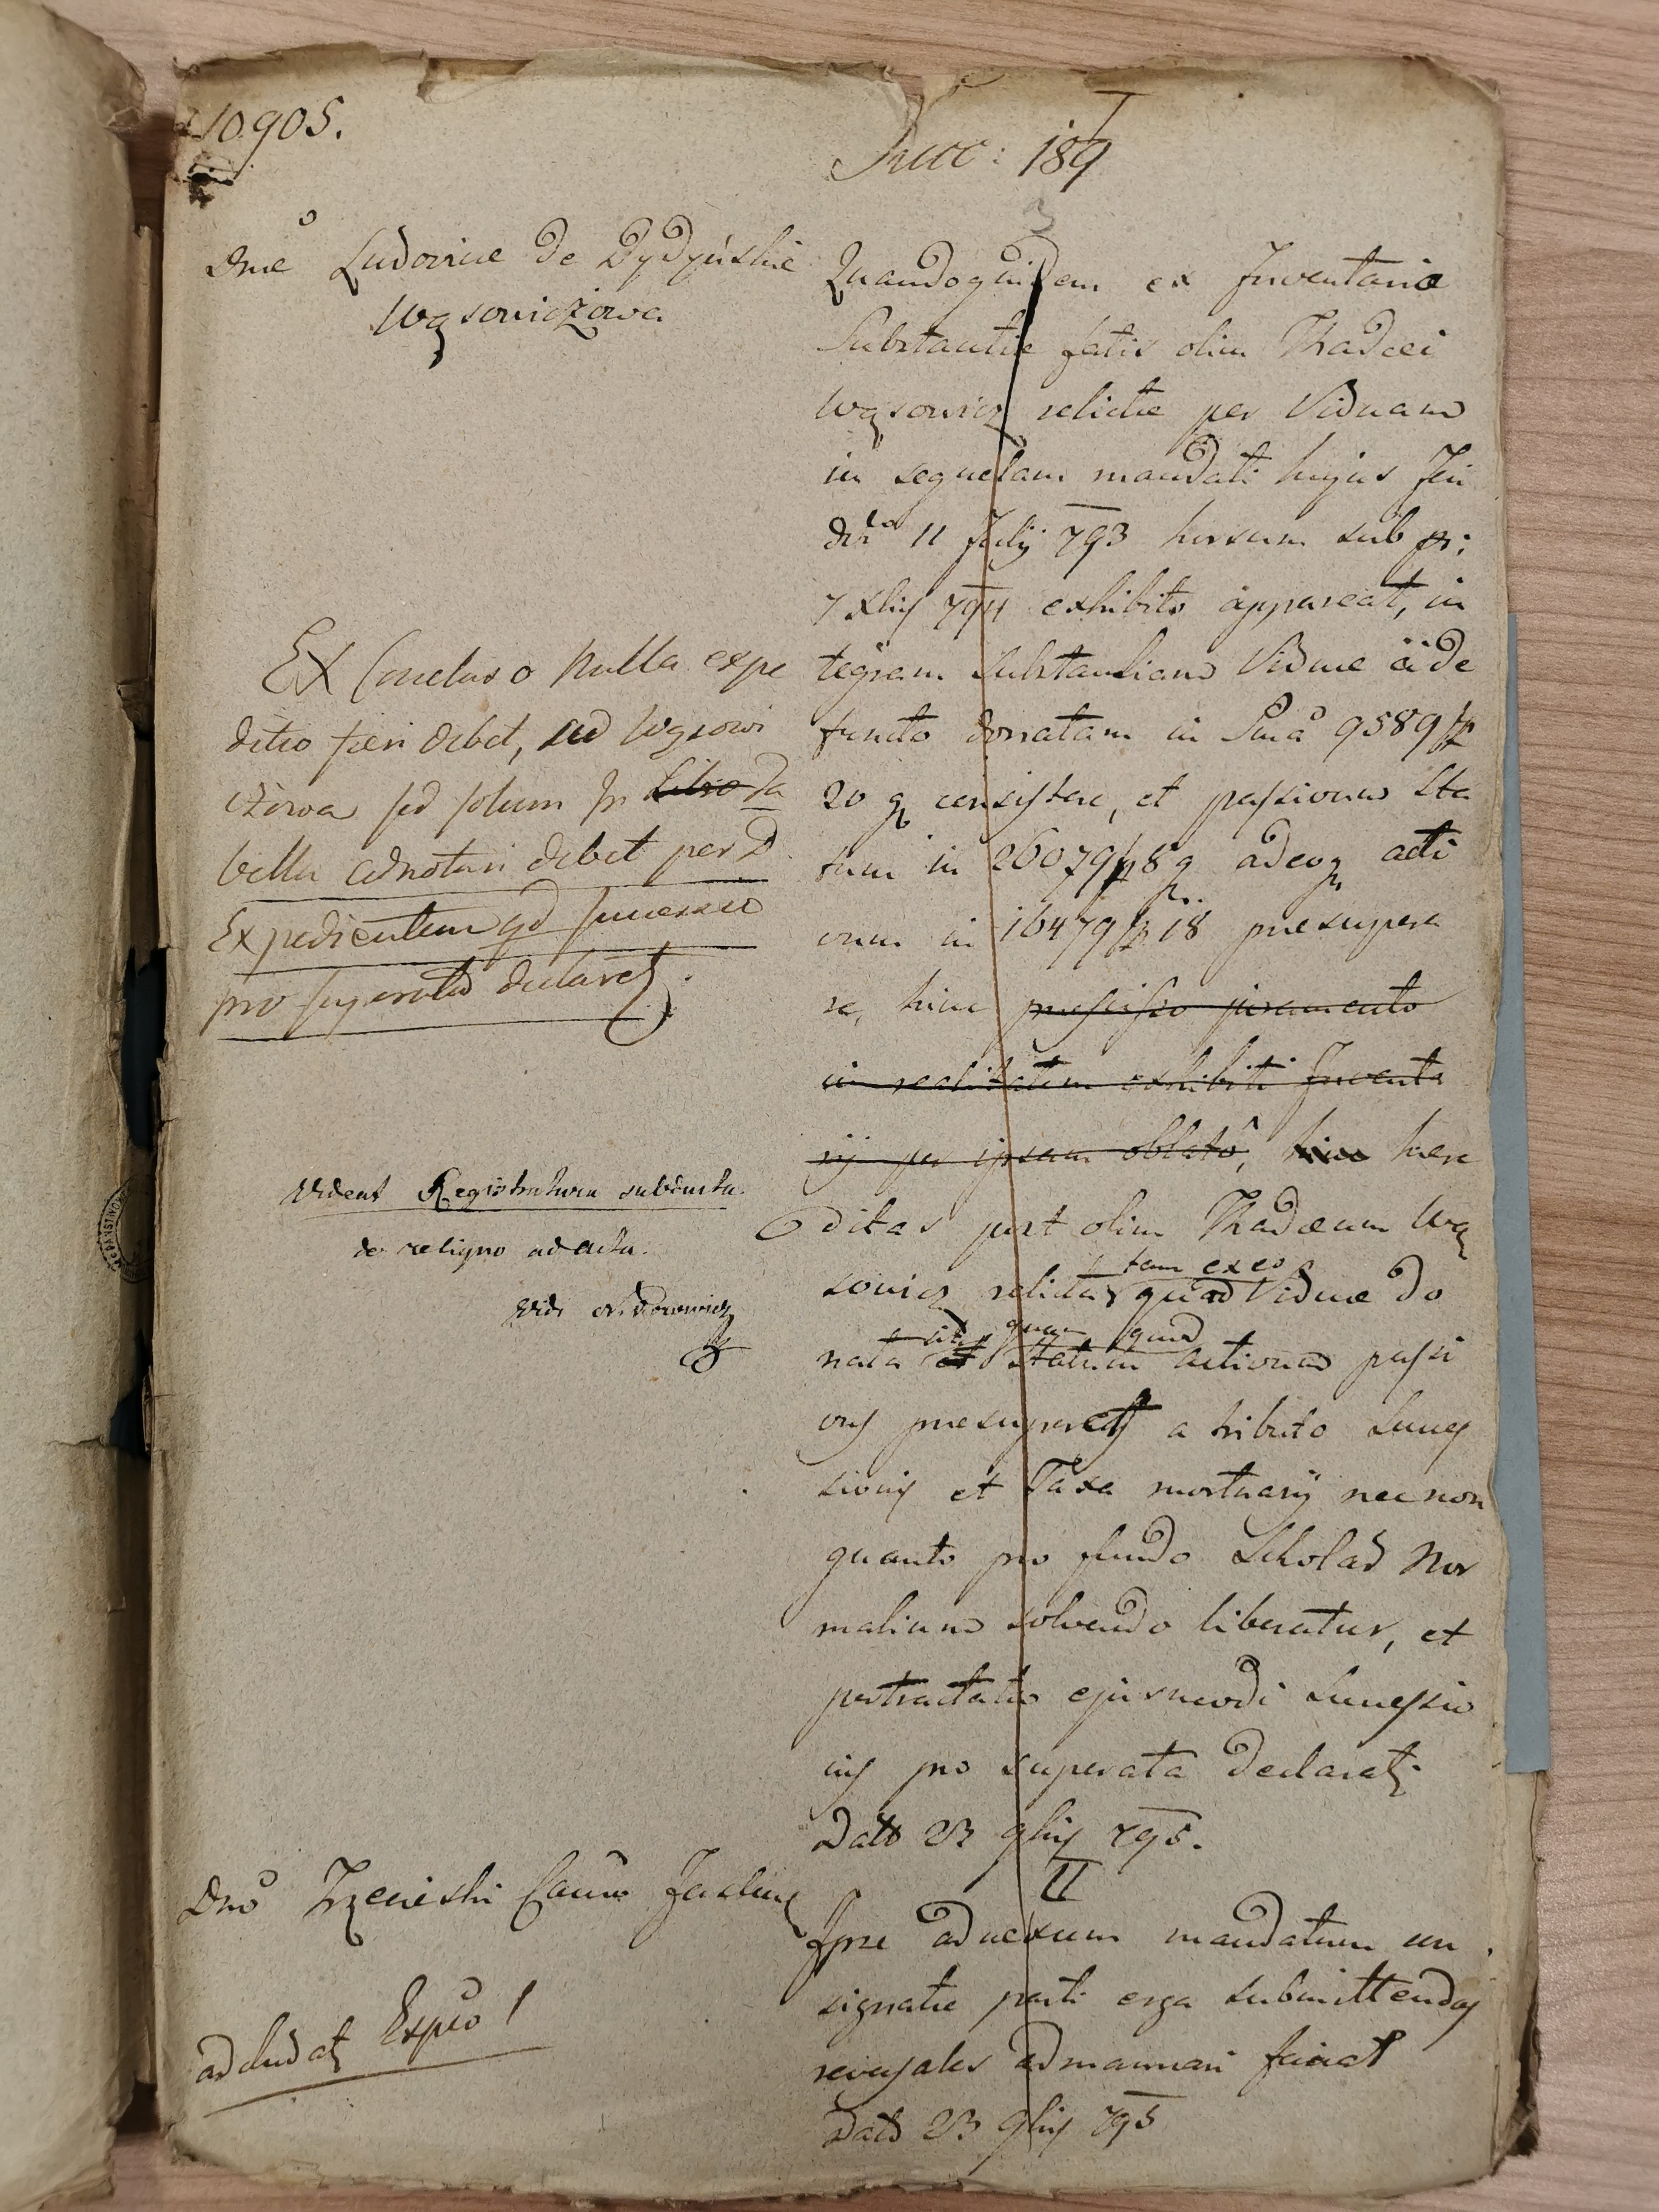 10905.
Succ: 189
I
Dnae Ludovicae de Dydyńskie
Wąsowiczowa
Quandoquidem ex Inventario
Substantiae fatis olim Thadaei
Wąsowicz relictae per Viduam
in sequelam mandati hujus Fori
dto 11 July 793 horsum sub pr:
7 Xbris 794 exhibito appareat, in
tegram Substantiam Viduae à de
functo donatam in Sumà 9589 fp
20 g consistere, et passivum Sta
tum in 26079 fp 8 g adeoq acti
vum in 16479 fp 18 presupera
re, hinc praescisso juramento
in realitatem exhibiti Inventa
rij per ipsam oblato, hinc haere
ditas post olim Thadaeum Wą
tam exeo
sowicz relicta quod Viduae do
sit, quam quod
nata et Statum activum passi
vus presuperet a tributo Succes
sionis et Taxa mortuarij nec non
quanto pro fundo Scholar Nor
malium solvendo liberatur, et
pertractatio ejusmodi Successio
nis pro superata declaratz.
Dato 23 9bris 795.
Ex Concluso Nulla expe
ditio fieri debet, ad Wąsowi
czowa sed solum in Libro Ta
bella adnotari debet per D
Expedientem qd Successio
pro superata declaretz.
Videat Registratura subducta.
de reliquo ad acta.
Vidi
II
Dno Camo
Ipse adnexum mandatum con
signatae parti erga submittendas
reversales admanuari faciat
Dato 23 9bris 795
adcludatz Expeo I